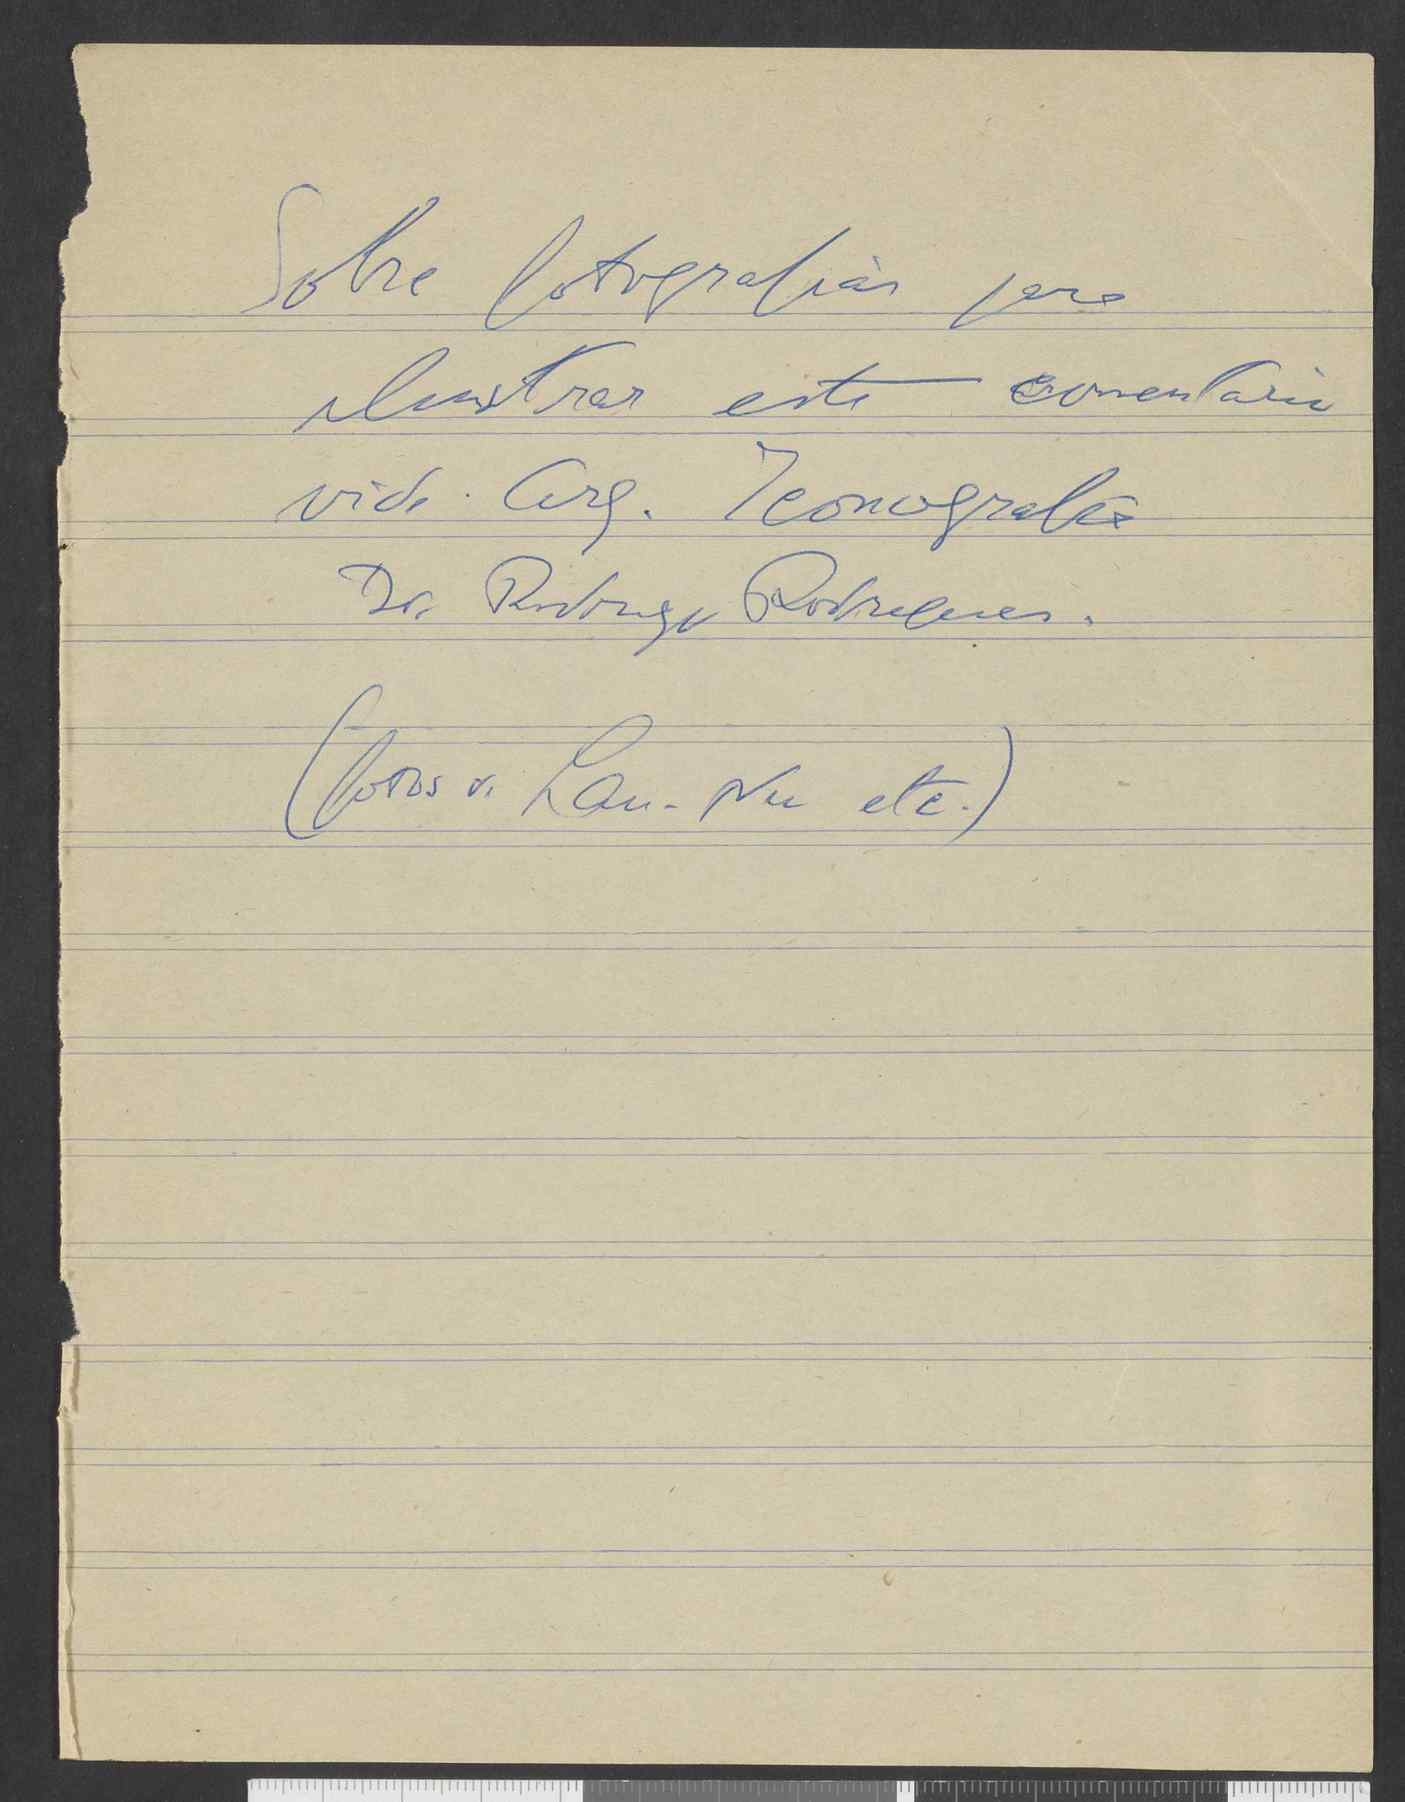 Sobre fotografias para
ilustrar este comentario
vide Arq. Iconografia
Dr. Rodrigo Rodrigues.
(fotos de Lau-Nu etc.)